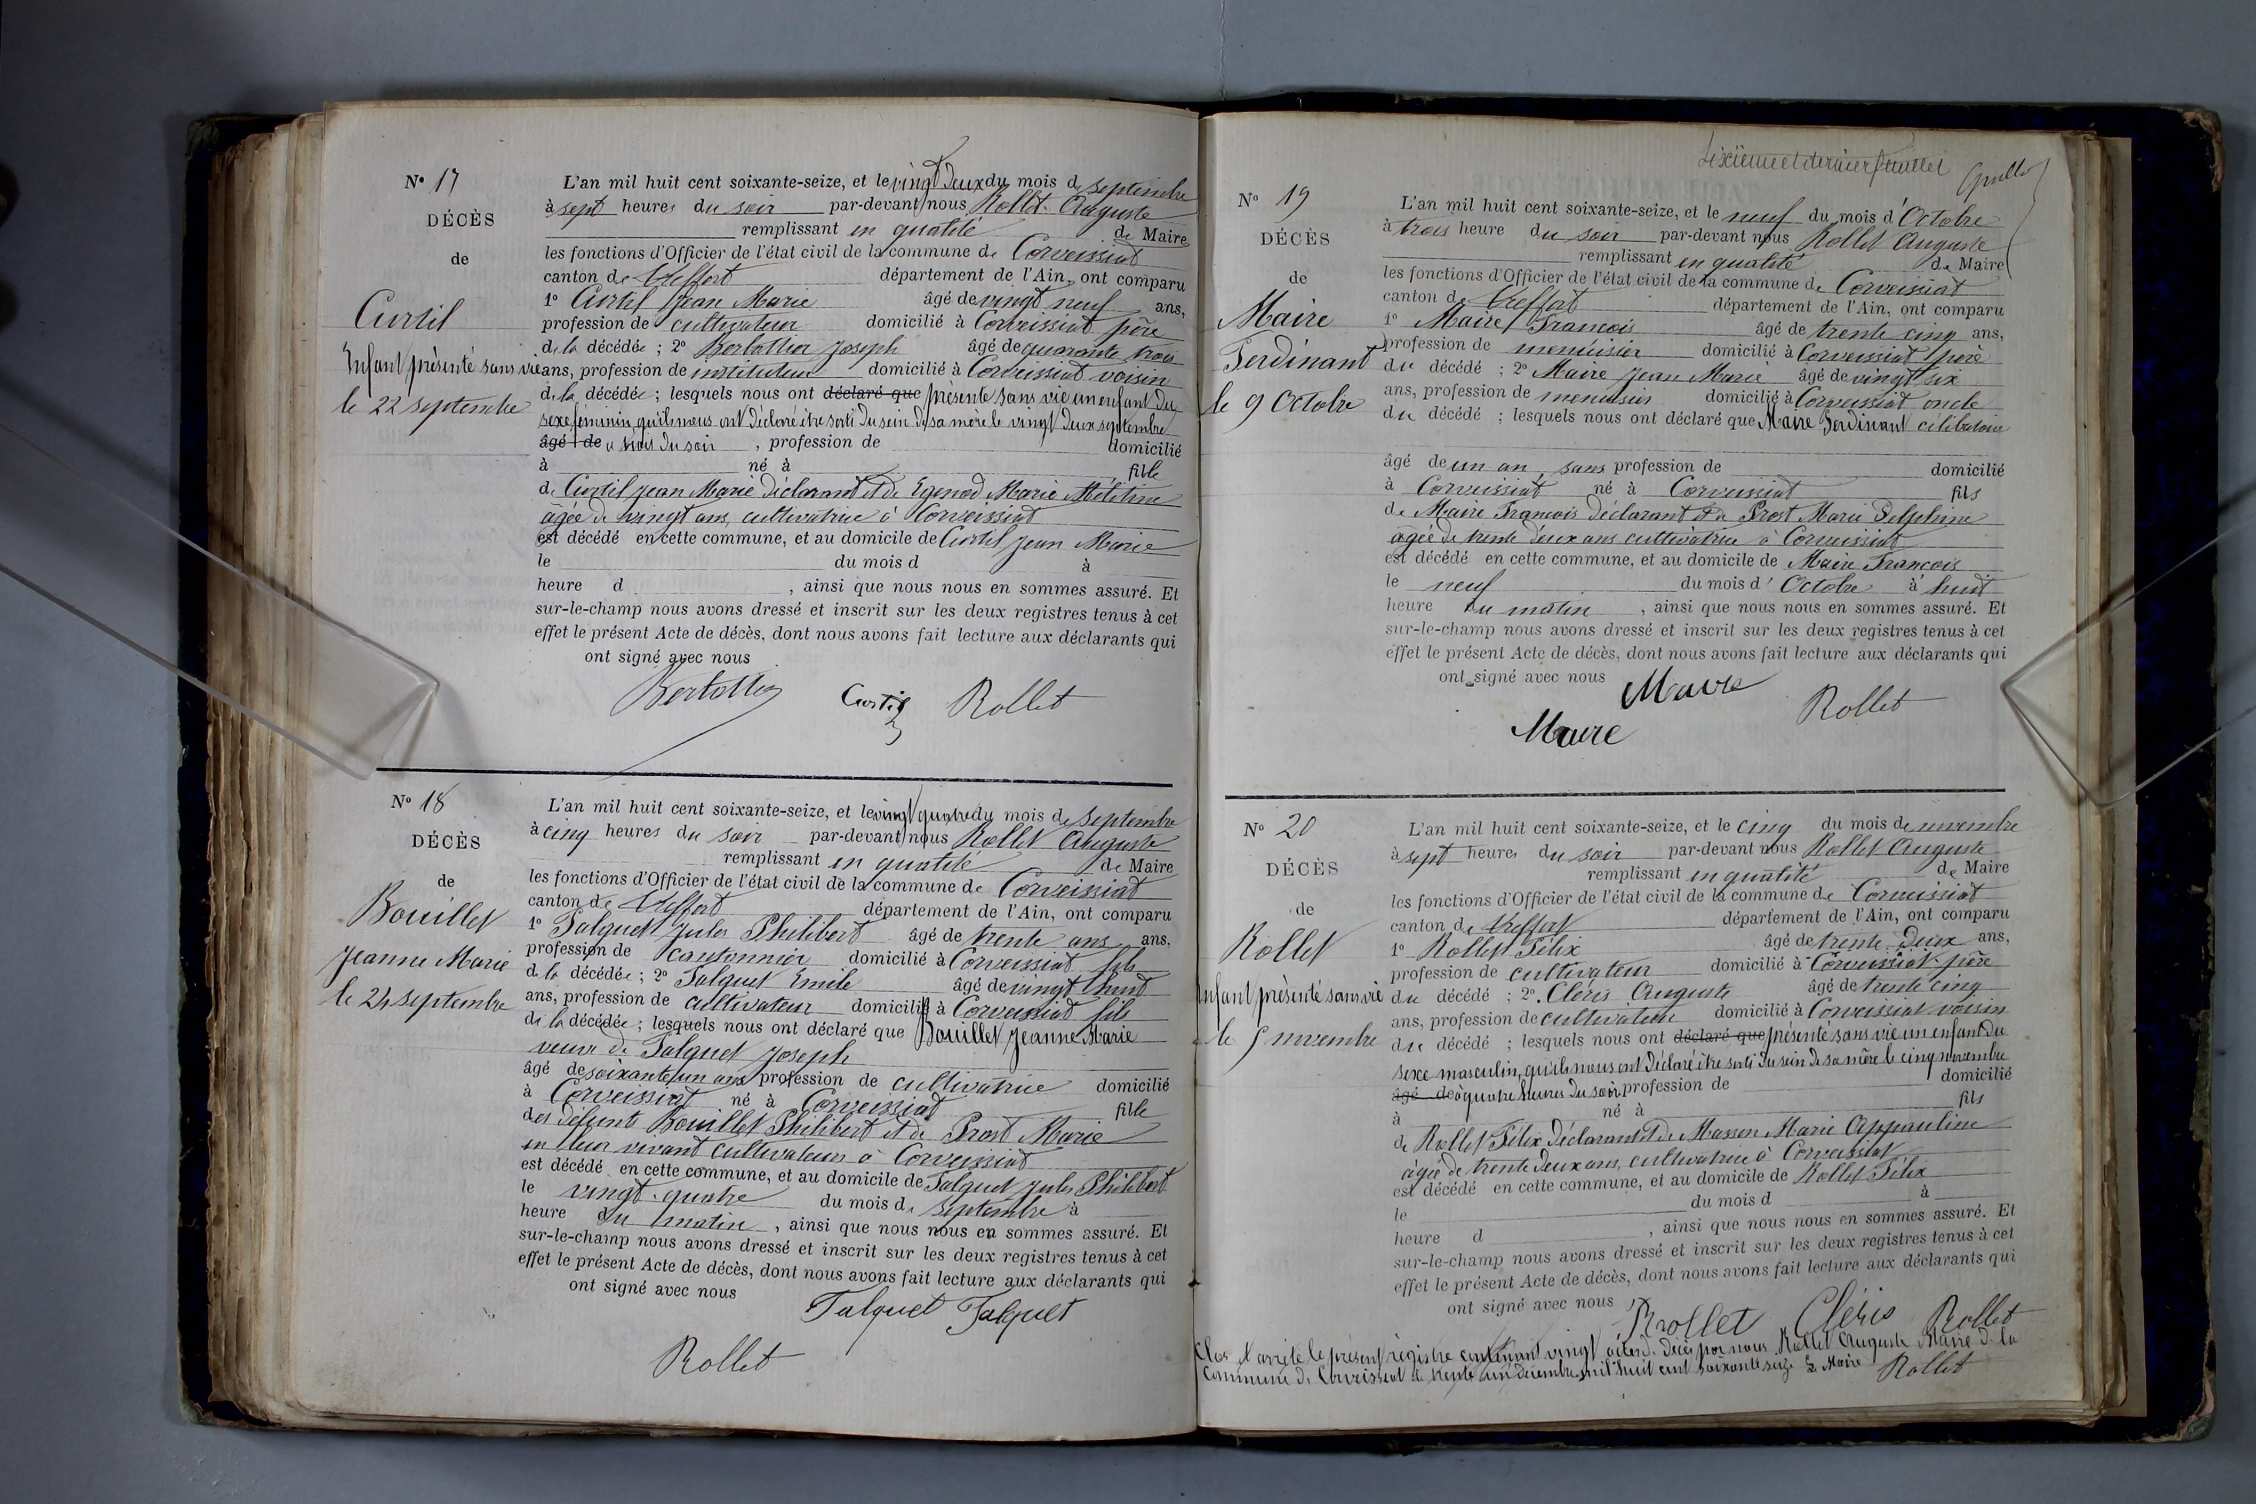 N° 17
DÉCÈS
de
Curtil
Enfant présenté sans vie
le 22 septembre
L'an mil huit cent soixante-seize, et le vingt deux du mois de septembre
à sept heures du soir par-devant nous Rollet Auguste
remplissant en qualité de Maire
les fonctions d'Officier de l'état civil de la commune de Corveissiat
canton de Treffort département de l'Ain, ont comparu
1° Curtil Jean Marie âgé de vingt neuf ans,
profession de cultivateur domicilié à Corveissiat père
de la décédée ; 2° Bertollier Joseph âgé de quarante trois
ans, profession de instituteur domicilié à Corveissiat voisin
de la décédée ; lesquels nous ont déclaré que présenté sans vie un enfant du
sexe féminin, qu'ils nous ont déclaré être sorti du sein de sa mère le vingt deux septembre
âgé de à trois du soir , profession de domicilié
à né à fille
de Curtil Jean Marie déclarant et de Egenod Marie
âgée de vingt ans, cultivatrice à Corveissiat
est décédé en cette commune, et au domicile de Curtil Jean Marie
le du mois d à
heure d , ainsi que nous nous en sommes assuré. Et
sur-le-champ nous avons dressé et inscrit sur les deux registres tenus à cet
effet le présent Acte de décès, dont nous avons fait lecture aux déclarants qui
ont signé avec nous
Bertollier Curtil Rollet
N° 18
DÉCÈS
de
Bouillet
Jeanne Marie
le 24 septembre
L'an mil huit cent soixante-seize, et le vingt quatre du mois de septembre
à cinq heures du soir par-devant nous Rollet Auguste
remplissant en qualité de Maire
les fonctions d'Officier de l'état civil de la commune de Corveissiat
canton de Treffort département de l'Ain, ont comparu
1° Falquet Jules Philibert âgé de trente ans ans,
profession de cantonnier domicilié à Corveissiat fils
de la décédée ; 2° Falquet Emile âgé de vingt huit
ans, profession de cultivateur domicilié à Corveissiat fils
de la décédée ; lesquels nous ont déclaré que Bouillet Jeanne Marie
veuve de Falquet Joseph
âgé de soixante un ans profession de cultivatrice domicilié
à Corveissiat né à Corveissiat fille
des défunts Bouillet Philibert et de Prost Marie
en leur vivant cultivateurs à Corveissiat
est décédé en cette commune, et au domicile de Falquet Jules Philibert
le vingt-quatre du mois de septembre à
heure du matin , ainsi que nous nous en sommes assuré. Et
sur-le-champ nous avons dressé et inscrit sur les deux registres tenus à cet
effet le présent Acte de décès, dont nous avons fait lecture aux déclarants qui
ont signé avec nous
Falquet Falquet
Rollet
Sixième et dernier feuillet
N° 19
DÉCÈS
de
Maire
Ferdinant
le 9 Octobre
L'an mil huit cent soixante-seize, et le neuf du mois d'Octobre
à trois heure du soir par-devant nous Rollet Auguste
remplissant en qualité de Maire
les fonctions d'Officier de l'état civil de la commune de Corveissiat
canton de Treffort département de l'Ain, ont comparu
1° Maire François âgé de trente cinq ans,
profession de menuisier domicilié à Corveissiat père
du décédé ; 2° Maire Jean Marie âgé de vingt six
ans, profession de menuisier domicilié à Corveissiat oncle
du décédé ; lesquels nous ont déclaré que Maire Ferdinant célibataire
âgé de un an, sans profession de domicilié
à Corveissiat né à Corveissiat fils
de Maire François déclarant et de Prost Marie Delphine
âgée de trente deux ans cultivatrice à Corveissiat
est décédé en cette commune, et au domicile de Maire François
le neuf du mois d'Octobre à huit
heure du matin , ainsi que nous nous en sommes assuré. Et
sur-le-champ nous avons dressé et inscrit sur les deux registres tenus à cet
effet le présent Acte de décès, dont nous avons fait lecture aux déclarants qui
ont signé avec nous
Maire Rollet
Maire
N° 20
DÉCÈS
de
Rollet
Enfant présenté sans vie
le 5 novembre
L'an mil huit cent soixante-seize, et le cinq du mois de novembre
à sept heures du soir par-devant nous Rollet Auguste
remplissant en qualité de Maire
les fonctions d'Officier de l'état civil de la commune de Corveissiat
canton de Treffort département de l'Ain, ont comparu
1° Rollet Félix âgé de trente deux ans,
profession de cultivateur domicilié à Corveissiat père
du décédé ; 2° Cléris Auguste âgé de trente cinq
ans, profession de cultivateur domicilié à Corveissiat voisin
du décédé ; lesquels nous ont déclaré que présenté sans vie un enfant du
sexe masculin, qu'ils nous ont déclaré être sorti du sein de sa mère le cinq novembre
âgé de à quatre heures du soir, profession de domicilié
à né à fils
de Rollet Félix déclarant et de Masson Marie Appauline
âgée de trente deux ans, cultivatrice à Corveissiat
est décédé en cette commune, et au domicile de Rollet Félix
le du mois d à
heure d , ainsi que nous nous en sommes assuré. Et
sur-le-champ nous avons dressé et inscrit sur les deux registres tenus à cet
effet le présent Acte de décès, dont nous avons fait lecture aux déclarants qui
ont signé avec nous
Rollet Cléris Rollet
Clos et arrêté le présent registre contenant vingt actes de décès par nous Rollet Auguste Maire de la
Commune de Corveissiat le trente un décembre mil huit cent soixante seize Le Maire Rollet